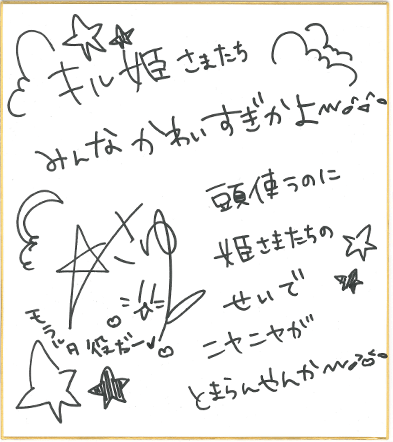 キル姫さまたち
みんなかわいすぎかよ〜
頭使うのに
姫さまたちの
せいで
ニヤニヤが
とまらんせんか〜